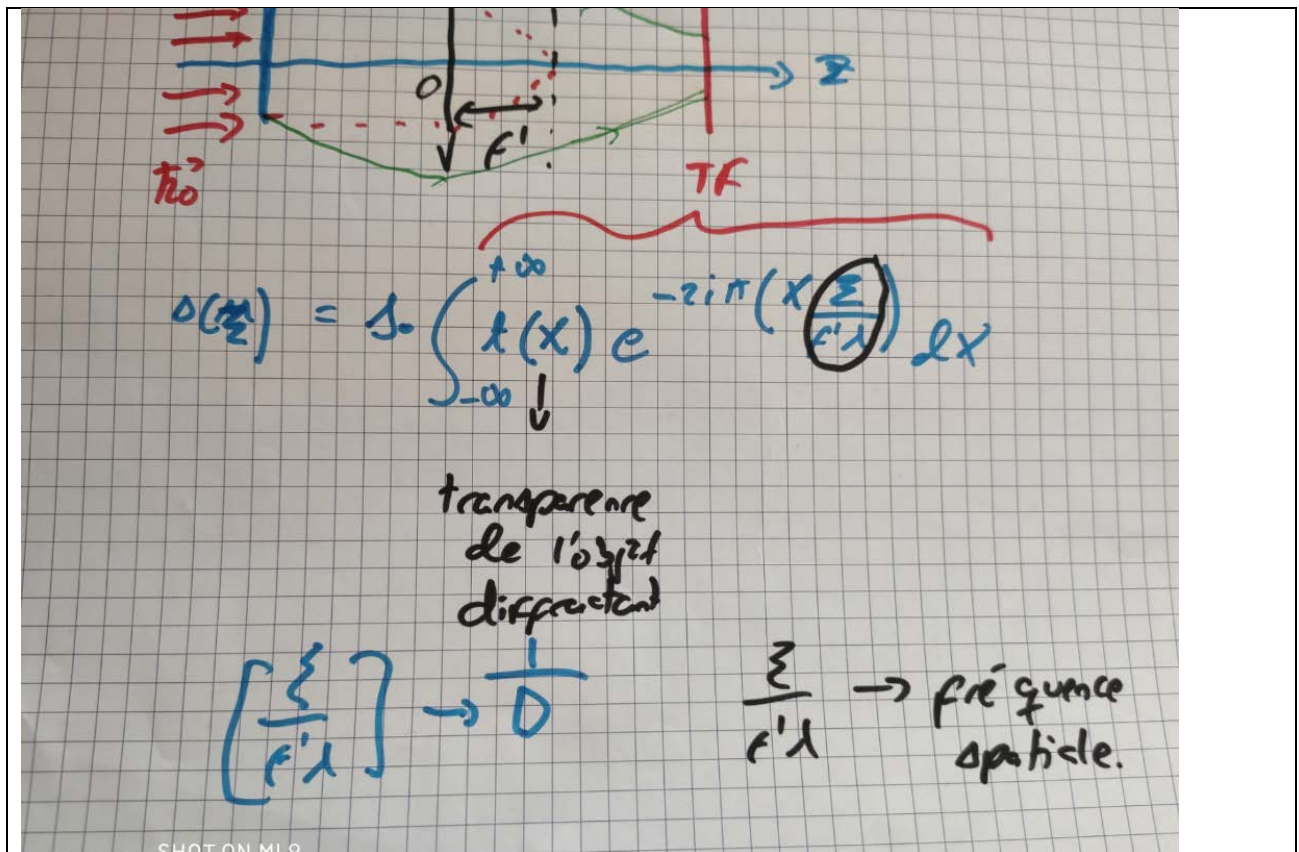 z
O
f'
k₀
TF
s(ξ) = s₀ ∫_{-∞}^{+∞} t(X) e^{-2iπ(X ξ/f'λ)} dX
transparence
de l'objet
diffractant
[ξ/f'λ] → 1/D
ξ/f'λ → fréquence
spatiale.
SHOT ON MI 9